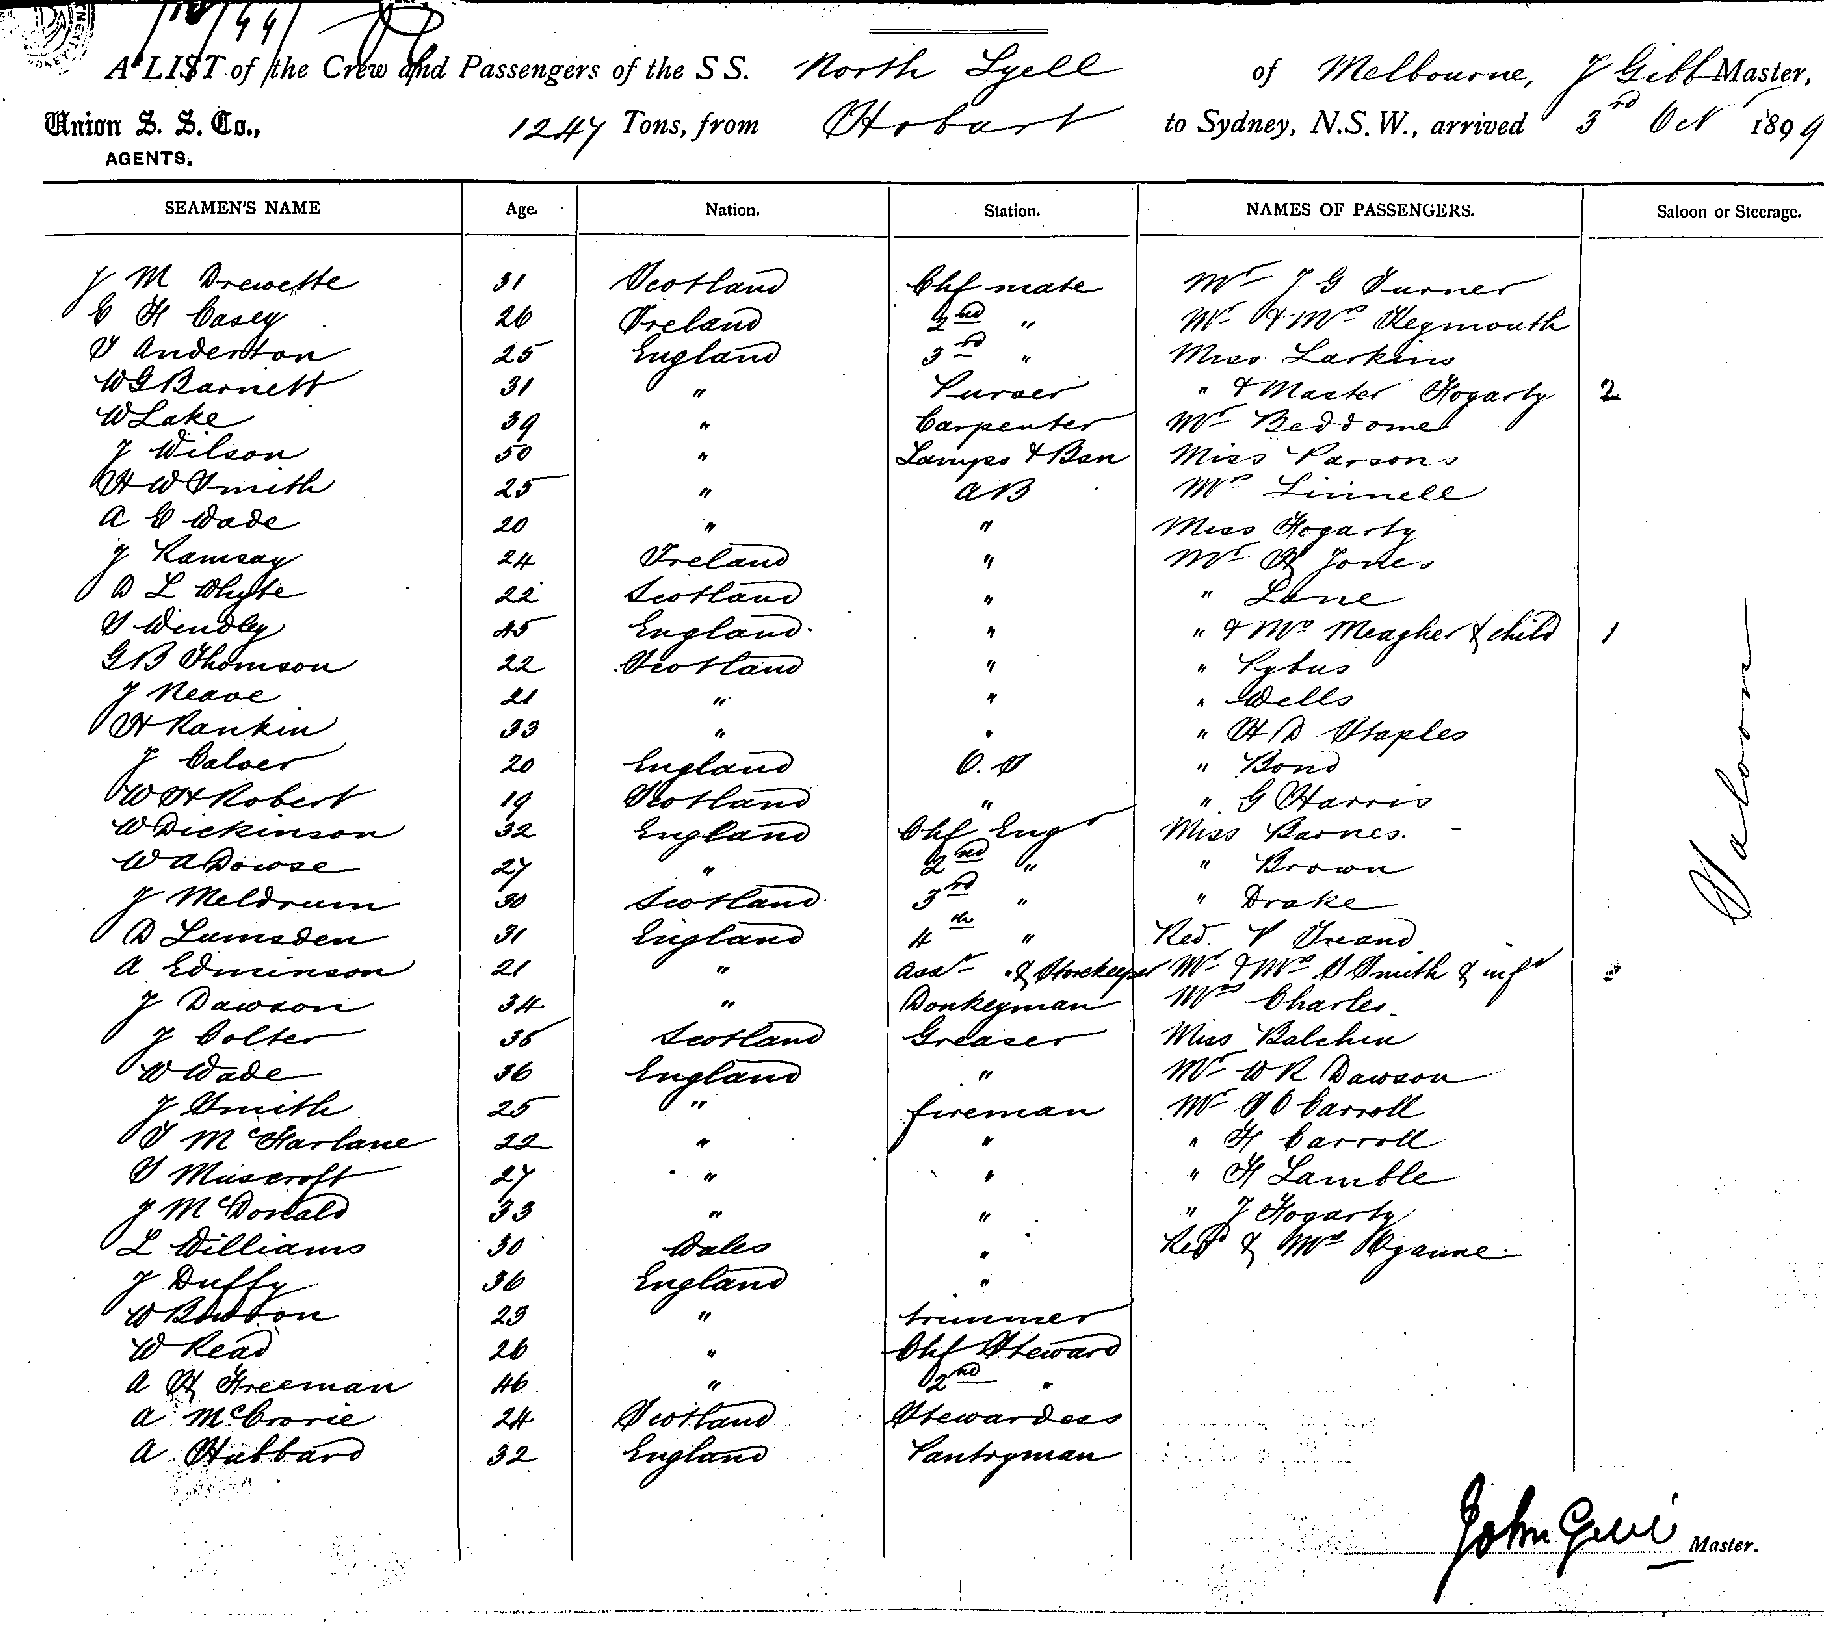 A LIST of the Crew and Passengers of the S S. North Lyell of Melbourne, J Gibb Master,
Union S. S. Co., 1247 Tons, from Hobart to Sydney, N.S.W., arrived 3rd Oct 1899
AGENTS.
SEAMEN'S NAME Age. Nation. Station. NAMES OF PASSENGERS. Saloon or Steerage.
J M Drewette 31 Scotland Chf mate Mr J G Turner
C H Casey 26 Ireland 2nd " Mr & Mrs Seymouth
T Anderton 25 England 3rd " Miss Larkins
W G Barnett 31 " Purser " & Master Hogarty 2
W Lake 39 " Carpenter Mr Beddome
J Wilson 50 " Lamps & Bsn Miss Parsons
H W Smith 25 " AB Mrs Linnell
A C Wade 20 " " Miss Hogarty
J Ramsay 24 Ireland " Mr H Jones
D L Whyte 22 Scotland " " Lane
T Windley 45 England " " & Mrs Meagher & child 1
G B Thomson 22 Scotland " " Pybus
J Neave 21 " " " Wells
H Rankin 33 " " " H D Staples
J Calver 20 England O.S " Bond
W H Robert 19 Scotland " " G Harris
W Dickinson 32 England Chf Engr Miss Barnes
W A Dowse 27 " 2nd " " Brown
J Meldrum 30 Scotland 3rd " " Drake
D Lumsden 31 England 4th " Red. V
A Edminson 21 " Asst " & Storekeeper Mr & Mrs S Smith & inft
J Dawson 34 " Donkeyman Mrs Charles
J Colter 35 Scotland Greaser Miss Balchin
W Wade 36 England " Mr W R Dawson
J Smith 25 " fireman Mr T O Carroll
T McFarlane 22 " " " H Carroll
T Muscroft 27 " " " H Lamble
J McDonald 33 " " " J Hogarty
L Williams 30 Wales " Revd & Mrs
J Duffy 36 England "
W 23 " trimmer
W Read 26 " Chf Steward
A H Freeman 46 " 2nd "
A McCrorie 24 Scotland Stewardess
A Hubbard 32 England Pantryman
Saloon
John Gibb Master.